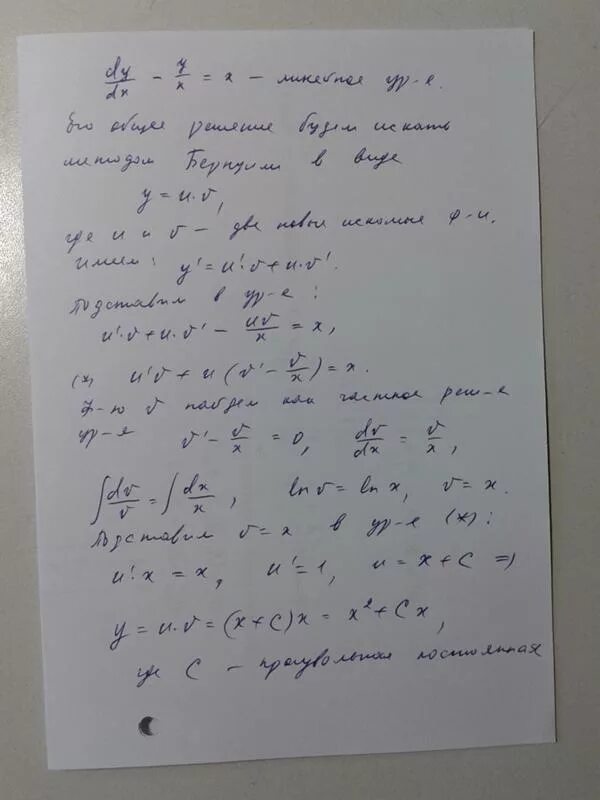 dy/dx − y/x = x – линейное ур-е.
Его общее решение будем искать
методом Бернулли в виде
y = u·v,
где u и v – две новые искомые ф-и.
Имеем: y' = u'·v + u·v'.
Подставим в ур-е:
u'·v + u·v' − uv/x = x,
(*) u'v + u(v' − v/x) = x.
Ф-ю v найдем как частное реш-е
ур-я v' − v/x = 0, dv/dx = v/x,
∫dv/v = ∫dx/x, ln v = ln x, v = x.
Подставим v = x в ур-е (*):
u'·x = x, u' = 1, u = x + C ⇒
y = u·v = (x + C)x = x² + Cx,
где C – произвольная постоянная